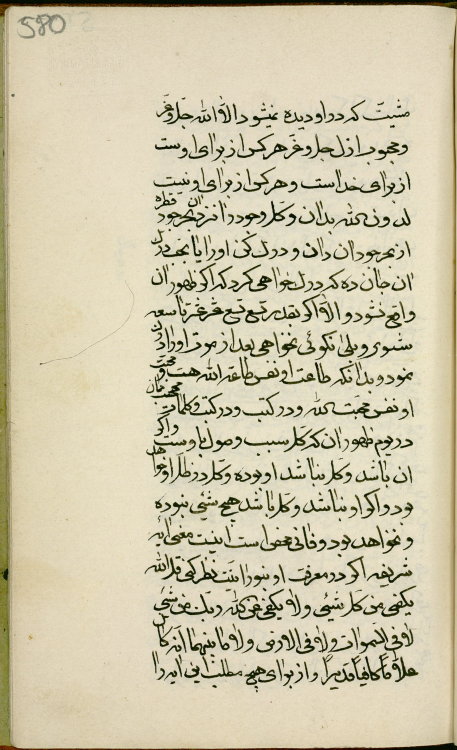 580
مشیت که در او دیده نمیشود الا الله جل و عز
و محبوب ازل جل و عز هر کس از برای اوست
از برای خداست و هر کس از برای او نیست
لدون الله بدان و کل وجود را نزد ان بحر جود قطره
از بحر جود ان دان و درک کن او را
ان جان ده که درک نخواهی کرد که اگر ظهور ان
واقع نشود و الا اگر بقدر تسع تسع عشر عشر تاسعه
شنوی و بلی نگوئی نخواهی بعد از موت او را درک
نمود و بدانکه طاعت او نفس طاعة الله هست و محبت
او نفس محبت الله و در کتب و در کتب و کلمات
در یوم ظهور ان که کل سبب وصول باوست و اگر
ان باشد و کل نباشد او بوده و کل در ظل او خواهد
بود و اگر او نباشد و کل باشد هیچ شیئی نبوده
و نخواهد بود و فانی محض است اینست معنی ایه
شریفه اگر در معرفت او بنور انیت نظر کنی قل الله
یکفی من کل شیئی و لا یکفی عن الله ربک من شیئی
لا فی السموات و لا فی الارض و لا ما بینهما انه کان
علاما کافیا قدیرا و از برای هیچ مطلب این ایه را